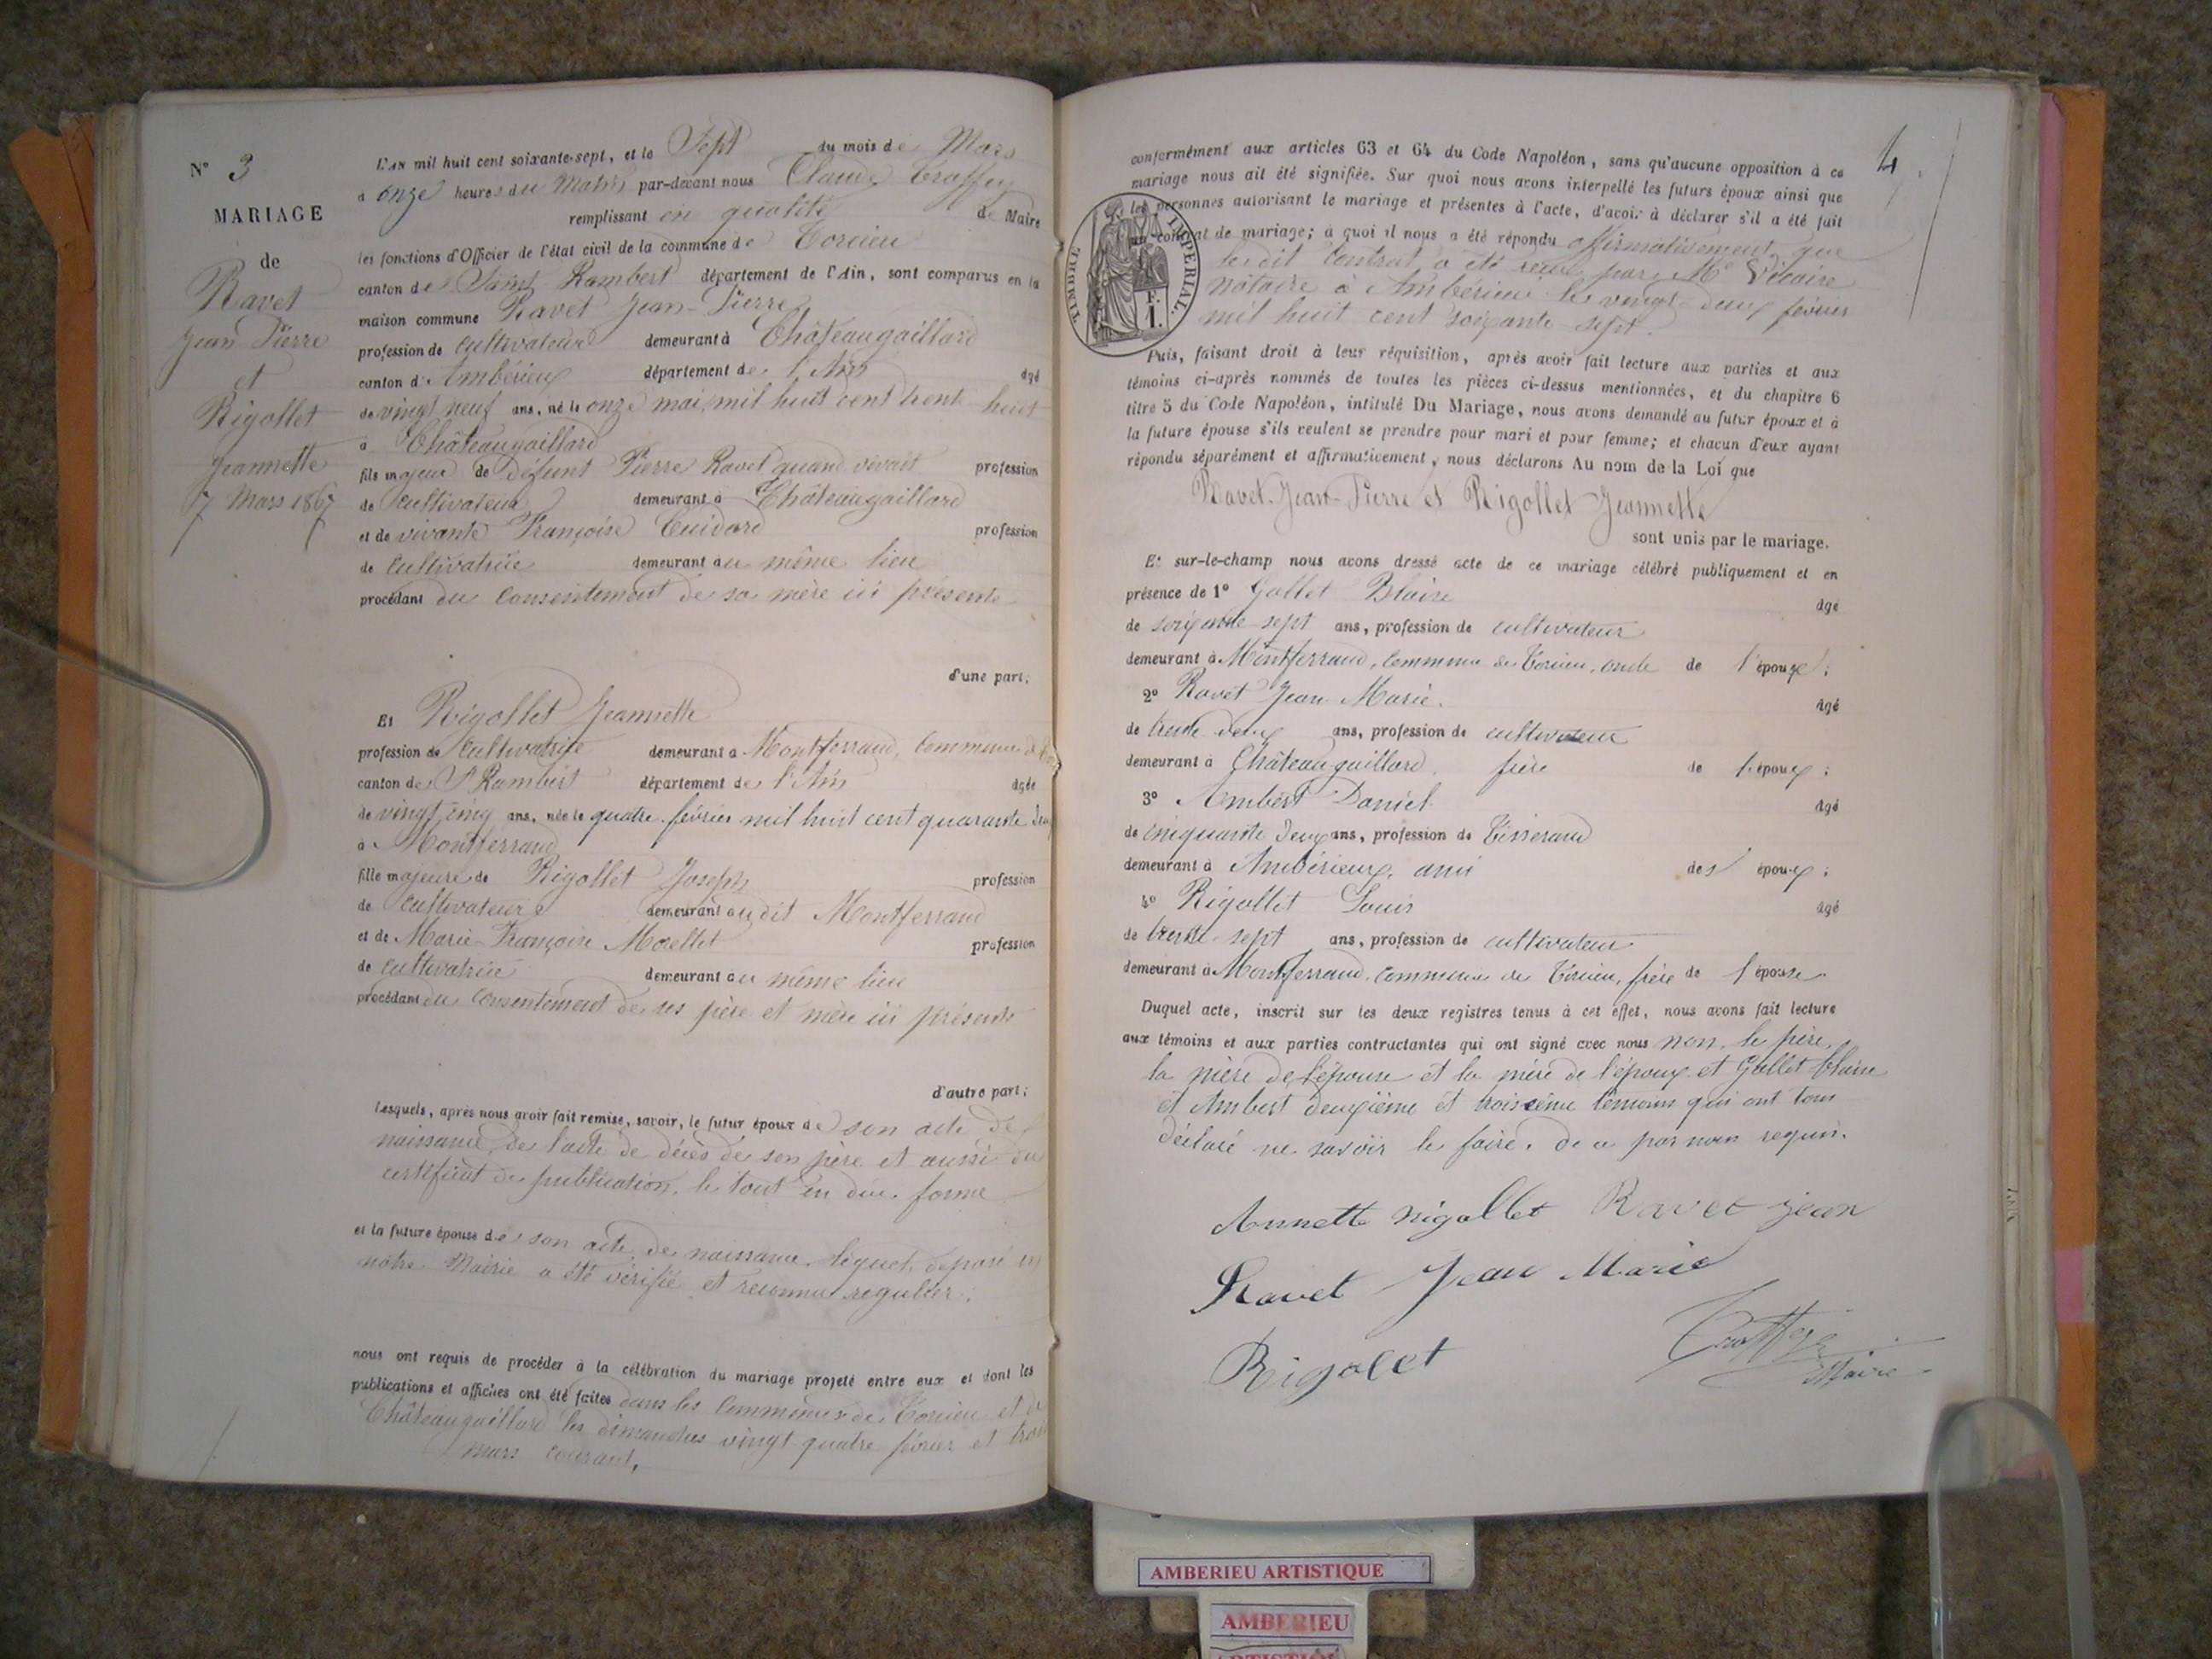 N° 3
MARIAGE
de
Ravet
Jean Pierre
et
Rigollet
Jeannette
7 Mars 1867
L'AN mil huit cent soixante-sept, et le Sept du mois de Mars
à onze heures du Matin par-devant nous Claude
remplissant en qualité de Maire
les fonctions d'Officier de l'état civil de la commune de Torcieu
canton de Saint-Rambert département de l'Ain, sont comparus en la
maison commune Ravet Jean-Pierre
profession de cultivateur demeurant à Châteaugaillard
canton d'Ambérieux département de l'Ain âgé
de vingt neuf ans, né le onze mai mil huit cent trente huit
à Châteaugaillard
fils majeur de Défunt Pierre Ravet quand vivait profession
de cultivateur demeurant à Châteaugaillard
et de vivante Françoise profession
de cultivatrice demeurant au même lieu
procédant du consentement de sa mère ici présente
d'une part;
Et Rigollet Jeannette
profession de cultivatrice demeurant à Montferrand, commune de
canton de St Rambert département de l'Ain âgée
de vingt cinq ans, née le quatre février mil huit cent quarante deux
à Montferrand
fille majeure de Rigollet Joseph profession
de cultivateur demeurant audit Montferrand
et de Marie-Françoise Morellet profession
de cultivatrice demeurant au même lieu
procédant du consentement de ses père et mère ici présents
d'autre part;
Lesquels, après nous avoir fait remise, savoir, le futur époux de son acte de
naissance, de l'acte de décès de son père et aussi du
certificat de publication, le tout en due forme
et la future épouse de son acte de naissance, lequel déposé en
notre Mairie a été vérifié et reconnu régulier.
nous ont requis de procéder à la célébration du mariage projeté entre eux et dont les
publications et affiches ont été faites dans les communes de Torcieu et de
Châteaugaillard les dimanches vingt quatre février et trois
mars courant,
4
conformément aux articles 63 et 64 du Code Napoléon, sans qu'aucune opposition à ce
mariage nous ait été signifiée. Sur quoi nous avons interpellé les futurs époux ainsi que
les personnes autorisant le mariage et présentes à l'acte, d'avoir à déclarer s'il a été fait
un contrat de mariage; à quoi il nous a été répondu affirmativement, que
le dit contrat a été reçu par Me Vicaire
notaire à Ambérieux le vingt-deux février
mil huit cent soixante-sept.
TIMBRE IMPERIAL.
1 F.
Puis, faisant droit à leur réquisition, après avoir fait lecture aux parties et aux
témoins ci-après nommés de toutes les pièces ci-dessus mentionnées, et du chapitre 6
titre 5 du Code Napoléon, intitulé Du Mariage, nous avons demandé au futur époux et à
la future épouse s'ils veulent se prendre pour mari et pour femme; et chacun d'eux ayant
répondu séparément et affirmativement, nous déclarons Au nom de la Loi que
Ravet Jean-Pierre et Rigollet Jeannette
sont unis par le mariage.
Et sur-le-champ nous avons dressé acte de ce mariage célébré publiquement et en
présence de 1° Gallet Blaise âgé
de soixante-sept ans, profession de cultivateur
demeurant à Montferrand, commune de Torcieu, oncle de l'épouse;
2° Ravet Jean-Marie. âgé
de trente deux ans, profession de cultivateur
demeurant à Châteaugaillard, frère de l'époux;
3° Ambert Daniel âgé
de cinquante deux ans, profession de Tisserand
demeurant à Ambérieux, ami des époux;
4° Rigollet Louis âgé
de trente-sept ans, profession de cultivateur
demeurant à Montferrand, commune de Torcieu, frère de l'épouse
Duquel acte, inscrit sur les deux registres tenus à cet effet, nous avons fait lecture
aux témoins et aux parties contractantes qui ont signé avec nous non, le père,
la mère de l'épouse et la mère de l'époux et Gallet blaise
et Ambert deuxième et troisième témoins qui ont tous
déclaré ne savoir le faire, de ce par nous requis.
Annette rigollet Ravet jean
Ravet Jean Marie
Rigolet
Maire
AMBERIEU ARTISTIQUE
AMBERIEU
ARTISTIQUE